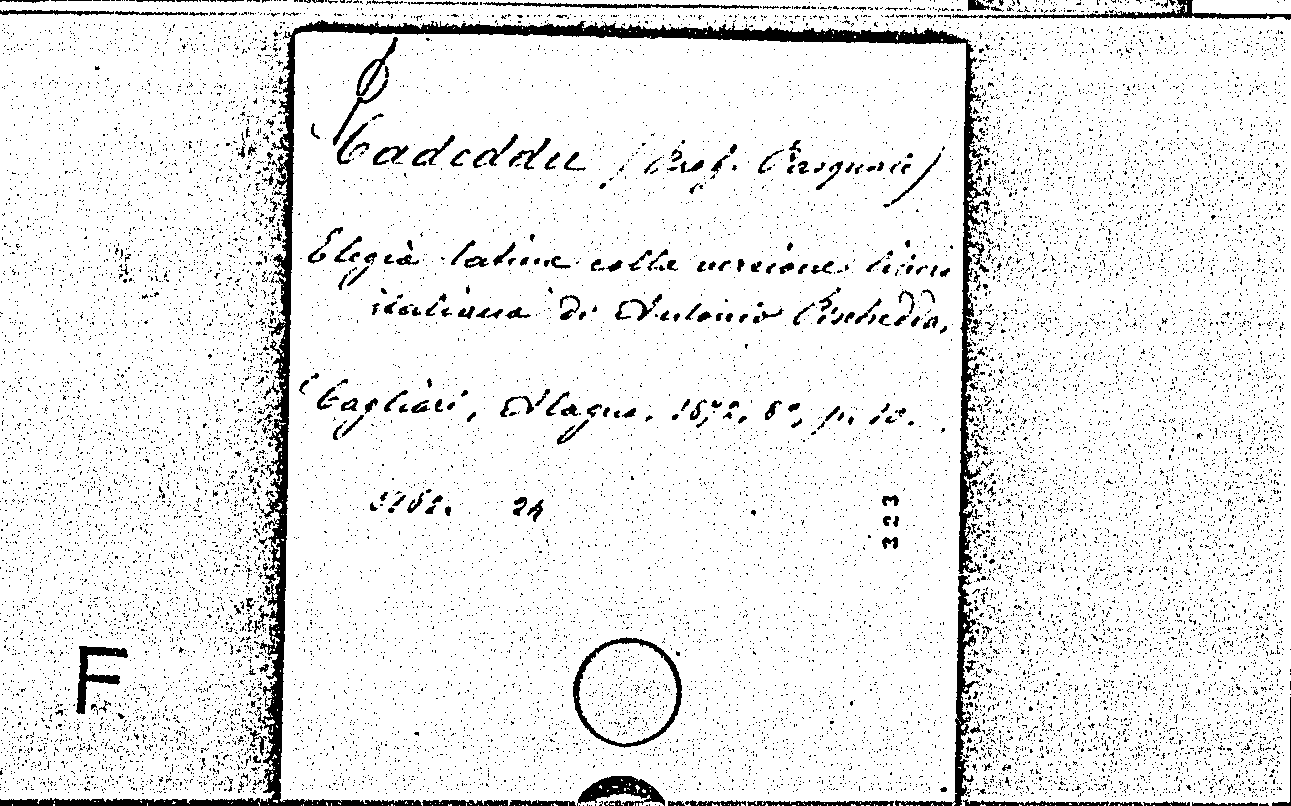 Cadeddu (Prof. Pasquale)
Elegia latina colla versione
italiana di Antonio Pischedda,
Cagliari, Alagna. 1872. 8°, p. 10.
24
323
F